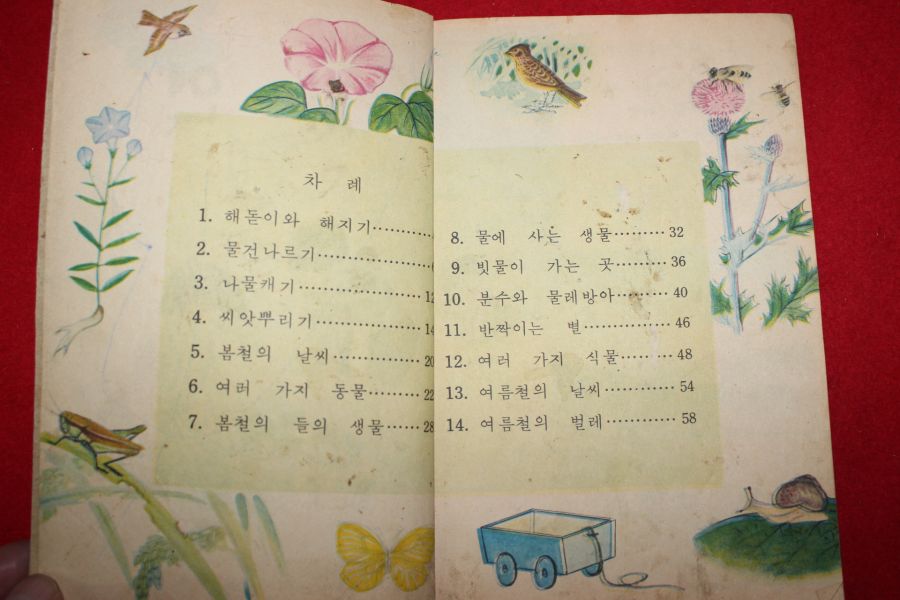 차 례
1. 해돋이와 해지기………
2. 물건나르기……………
3. 나물캐기………………12
4. 씨앗뿌리기……………14
5. 봄철의 날씨…………20
6. 여러 가지 동물………22
7. 봄철의 들의 생물……28
8. 물에 사는 생물………32
9. 빗물이 가는 곳………36
10. 분수와 물레방아……40
11. 반짝이는 별…………46
12. 여러 가지 식물………48
13. 여름철의 날씨…………54
14. 여름철의 벌레…………58